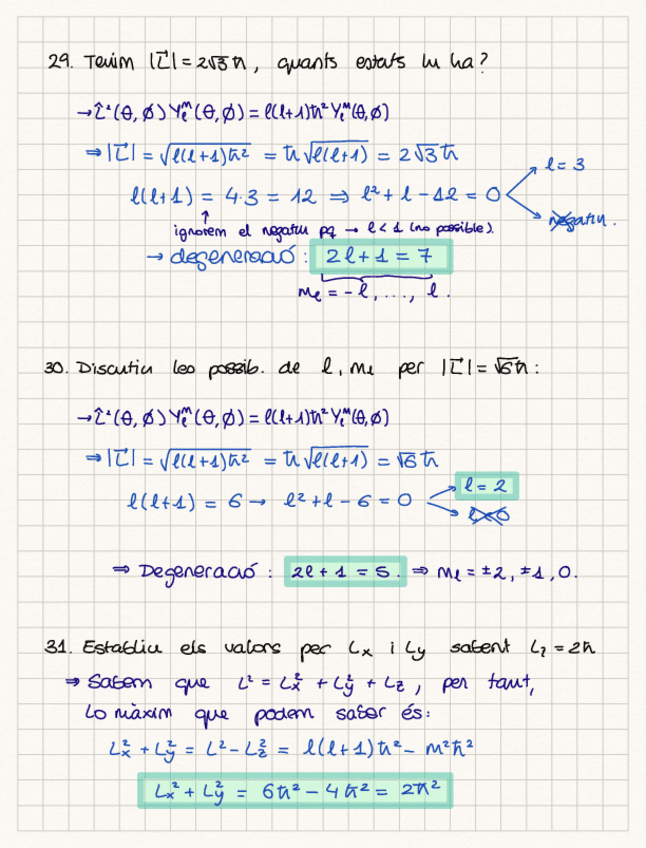 29. Tenim |L⃗| = 2√3 ħ, quants estats hi ha?
→ L̂²(θ, ϕ) Yₗᵐ(θ, ϕ) = l(l+1)ħ² Yₗᵐ(θ, ϕ)
⇒ |L⃗| = √(l(l+1)ħ²) = ħ √(l(l+1)) = 2√3 ħ
l(l+1) = 4·3 = 12 ⇒ l² + l - 12 = 0
l = 3
negatiu.
↑
ignorem el negatiu pq → l < 1 (no possible).
→ degeneració: 2l + 1 = 7
mₗ = -l, ..., l.
30. Discutiu les possib. de l, mₗ per |L⃗| = √6 ħ:
→ L̂²(θ, ϕ) Yₗᵐ(θ, ϕ) = l(l+1)ħ² Yₗᵐ(θ, ϕ)
⇒ |L⃗| = √(l(l+1)ħ²) = ħ √(l(l+1)) = √6 ħ
l(l+1) = 6 → l² + l - 6 = 0
l = 2
l<0
⇒ Degeneració: 2l + 1 = 5. ⇒ mₗ = ±2, ±1, 0.
31. Establiu els valors per Lx i Ly sabent Lz = 2ħ
⇒ Sabem que L² = Lx² + Ly² + Lz, per tant,
Lo màxim que podem saber és:
Lx² + Ly² = L² - Lz² = l(l+1)ħ² - m²ħ²
Lx² + Ly² = 6ħ² - 4ħ² = 2ħ²